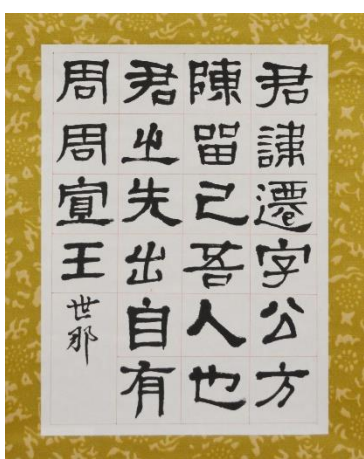 君諱遷字公方
陳留己吾人也
君之先出自有
周周宣王
世那